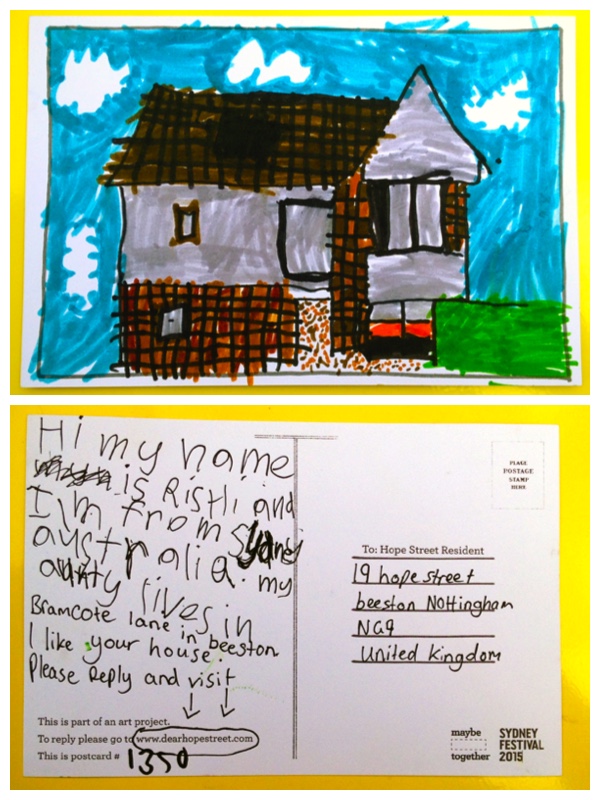 Hi my name
is Rishi and
I'm from Sydney
australia. my
aunty lives in
Bramcote lane in beeston
I like your house
Please Reply and visit
This is part of an art project.
To reply please go to www.dearhopestreet.com
This is postcard # 1350
PLACE
POSTAGE
STAMP
HERE
To: Hope Street Resident
19 hope street
beeston Nottingham
NG9
United kingdom
maybe
together
SYDNEY
FESTIVAL
2015